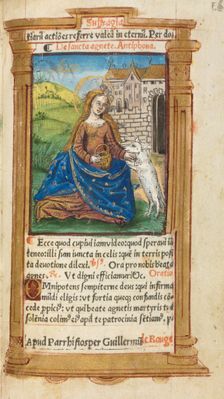 Suffragia
tiarũ actiões referre valeã in eternũ. Per dñm
De sancta agnete. Antiphona.
Ecce quod cupiui iam video: quod speraui iã
teneo: illi sum iuncta in celis: quẽ in terris posi
ta deuotione dilexi. Ora pro nobis beata
agnes. Ut digni efficiamur &c. Oratio
Omnipotens sempiterne deus: qui infirma
mũdi eligis: vt fortia queq; confundas: cõ
cede ppici9: vt qui beate agnetis martyris tuę
solẽnia colim9: eius apud te patrocinia sẽtiam9. p
Apud Parrhisios per Guillermũ le Rouge